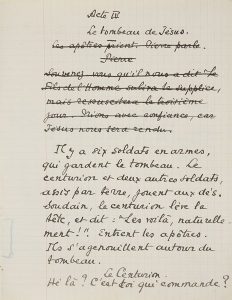 Acte IV
Le tombeau de Jésus.
Les apôtres prient. Pierre parle.
Pierre
Souvenez-vous qu'il nous a dit "Le
Fils de l'Homme subira le supplice,
mais ressuscitera le troisième
jour. Prions avec confiance, car
Jésus nous sera rendu.
Il y a six soldats en armes,
qui gardent le tombeau. Le
centurion et deux autres soldats,
assis par terre, jouent aux dés.
Soudain, le centurion lève la
tête, et dit: "Les voilà, naturelle-
ment!". Entrent les apôtres.
Ils s'agenouillent autour du
tombeau.
Le Centurion.
Hé là? C'est toi qui commande?